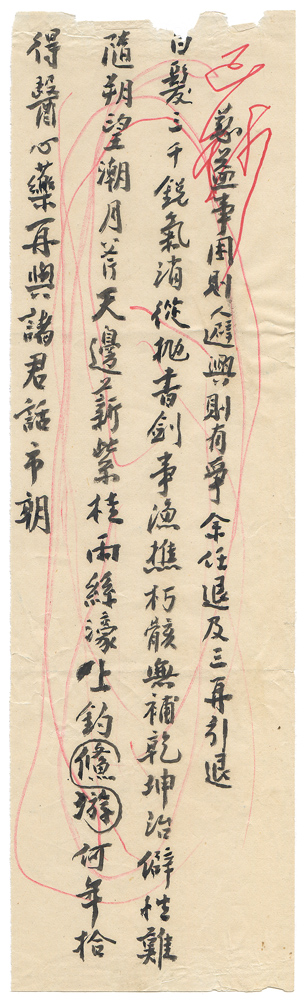 已
慈益事困則人避興則有爭余任退及三再引退
白髮三千銳氣消從拋書劍事漁樵朽骸無補乾坤治僻性難
隨朔望潮月斧天邊薪紫桂雨絲濠上釣鯈游何年拾
得醫心藥再與諸君話市朝